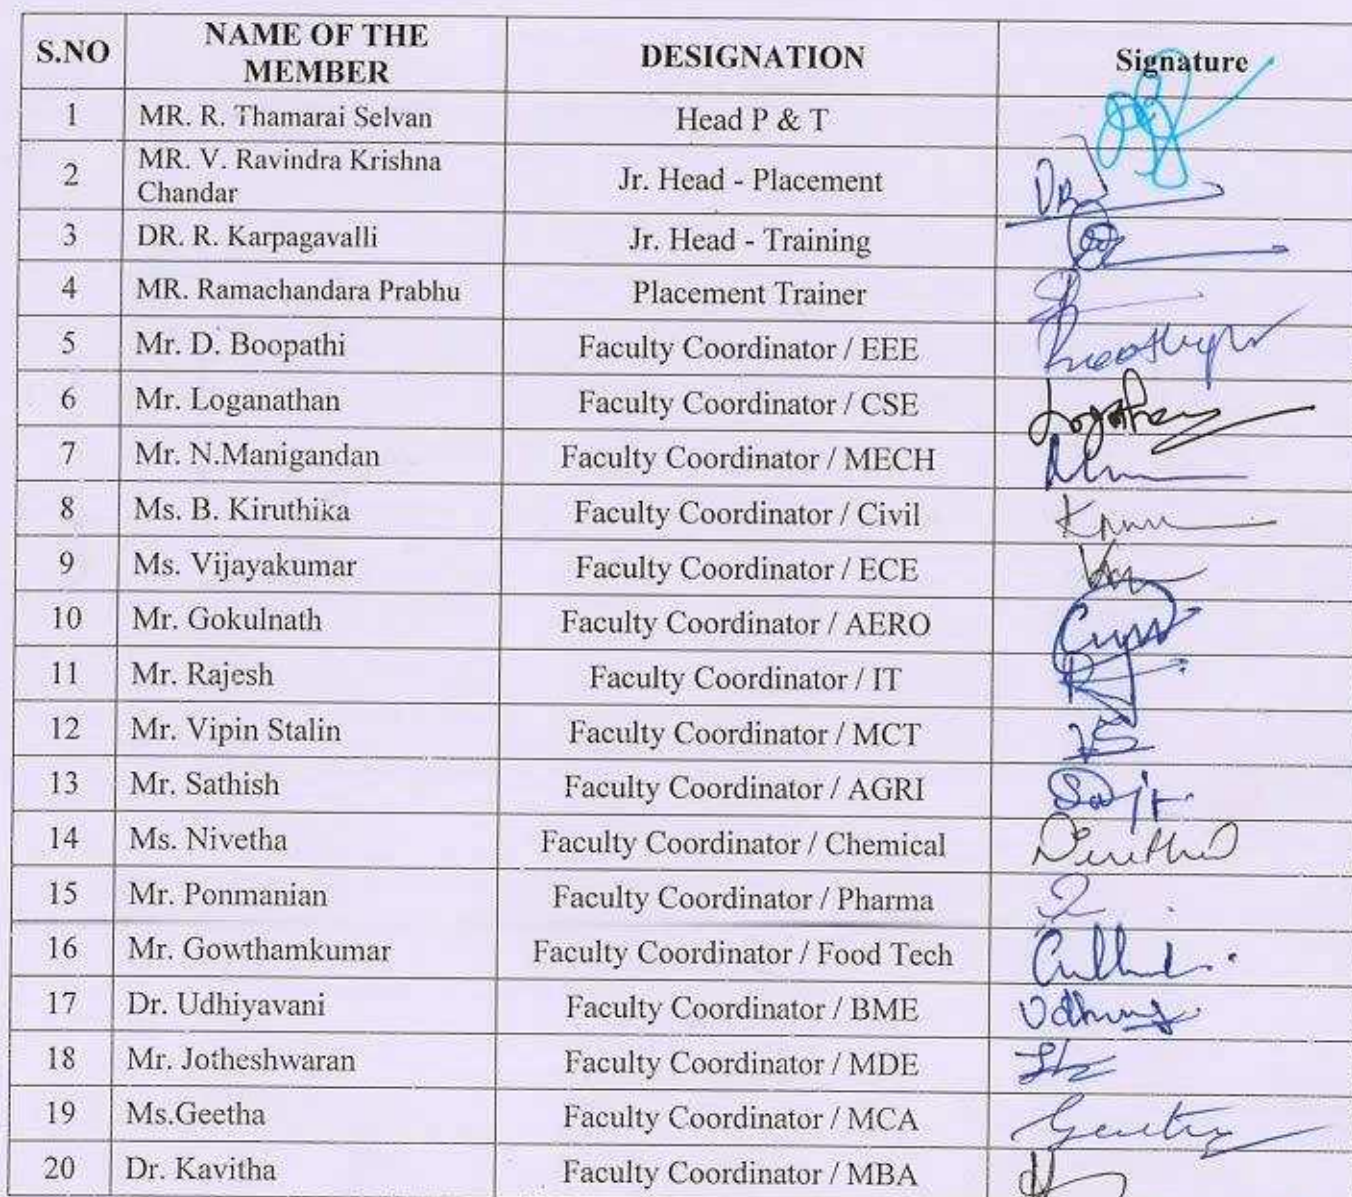 S.NO NAME OF THE MEMBER DESIGNATION Signature
1 MR. R. Thamarai Selvan Head P & T
2 MR. V. Ravindra Krishna Chandar Jr. Head - Placement
3 DR. R. Karpagavalli Jr. Head - Training
4 MR. Ramachandara Prabhu Placement Trainer
5 Mr. D. Boopathi Faculty Coordinator / EEE
6 Mr. Loganathan Faculty Coordinator / CSE
7 Mr. N.Manigandan Faculty Coordinator / MECH
8 Ms. B. Kiruthika Faculty Coordinator / Civil
9 Ms. Vijayakumar Faculty Coordinator / ECE
10 Mr. Gokulnath Faculty Coordinator / AERO
11 Mr. Rajesh Faculty Coordinator / IT
12 Mr. Vipin Stalin Faculty Coordinator / MCT
13 Mr. Sathish Faculty Coordinator / AGRI
14 Ms. Nivetha Faculty Coordinator / Chemical
15 Mr. Ponmanian Faculty Coordinator / Pharma
16 Mr. Gowthamkumar Faculty Coordinator / Food Tech
17 Dr. Udhiyavani Faculty Coordinator / BME
18 Mr. Jotheshwaran Faculty Coordinator / MDE
19 Ms.Geetha Faculty Coordinator / MCA
20 Dr. Kavitha Faculty Coordinator / MBA